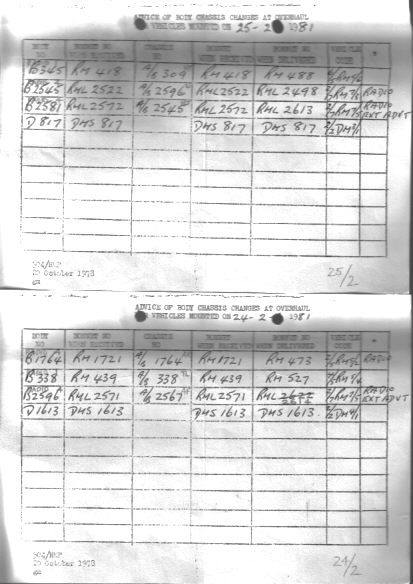 ADVICE OF BODY CHASSIS CHANGES AT OVERHAUL
VEHICLES MOUNTED ON 25-2 1981
BODY NO BONNET NO WHEN RECEIVED CHASSIS NO BONNET WHEN RECEIVED BONNET NO WHEN DELIVERED VEHICLE CODE *
B345 RM 418 309 RM 418 RM 488
B2545 RML 2522 2596 RML 2522 RML 2498 RADIO
B2581 RML 2572 2545 RML 2572 RML 2613 RADIO EXT ADVT
D 817 DMS 817 DMS 817 DMS 817
20 October 1978
25/2
ADVICE OF BODY CHASSIS CHANGES AT OVERHAUL
VEHICLES MOUNTED ON 24-2- 1981
BODY NO BONNET NO WHEN RECEIVED CHASSIS NO BONNET WHEN RECEIVED BONNET NO WHEN DELIVERED VEHICLE CODE *
B1764 RM 1721 1764 RM 1721 RM 473 RADIO
B338 RM 439 338 RM 439 RM 527
B2596 RML 2571 2567 RML 2571 RML RADIO EXT ADVT
D1613 DMS 1613 DMS 1613 DMS 1613
20 October 1978
24/2